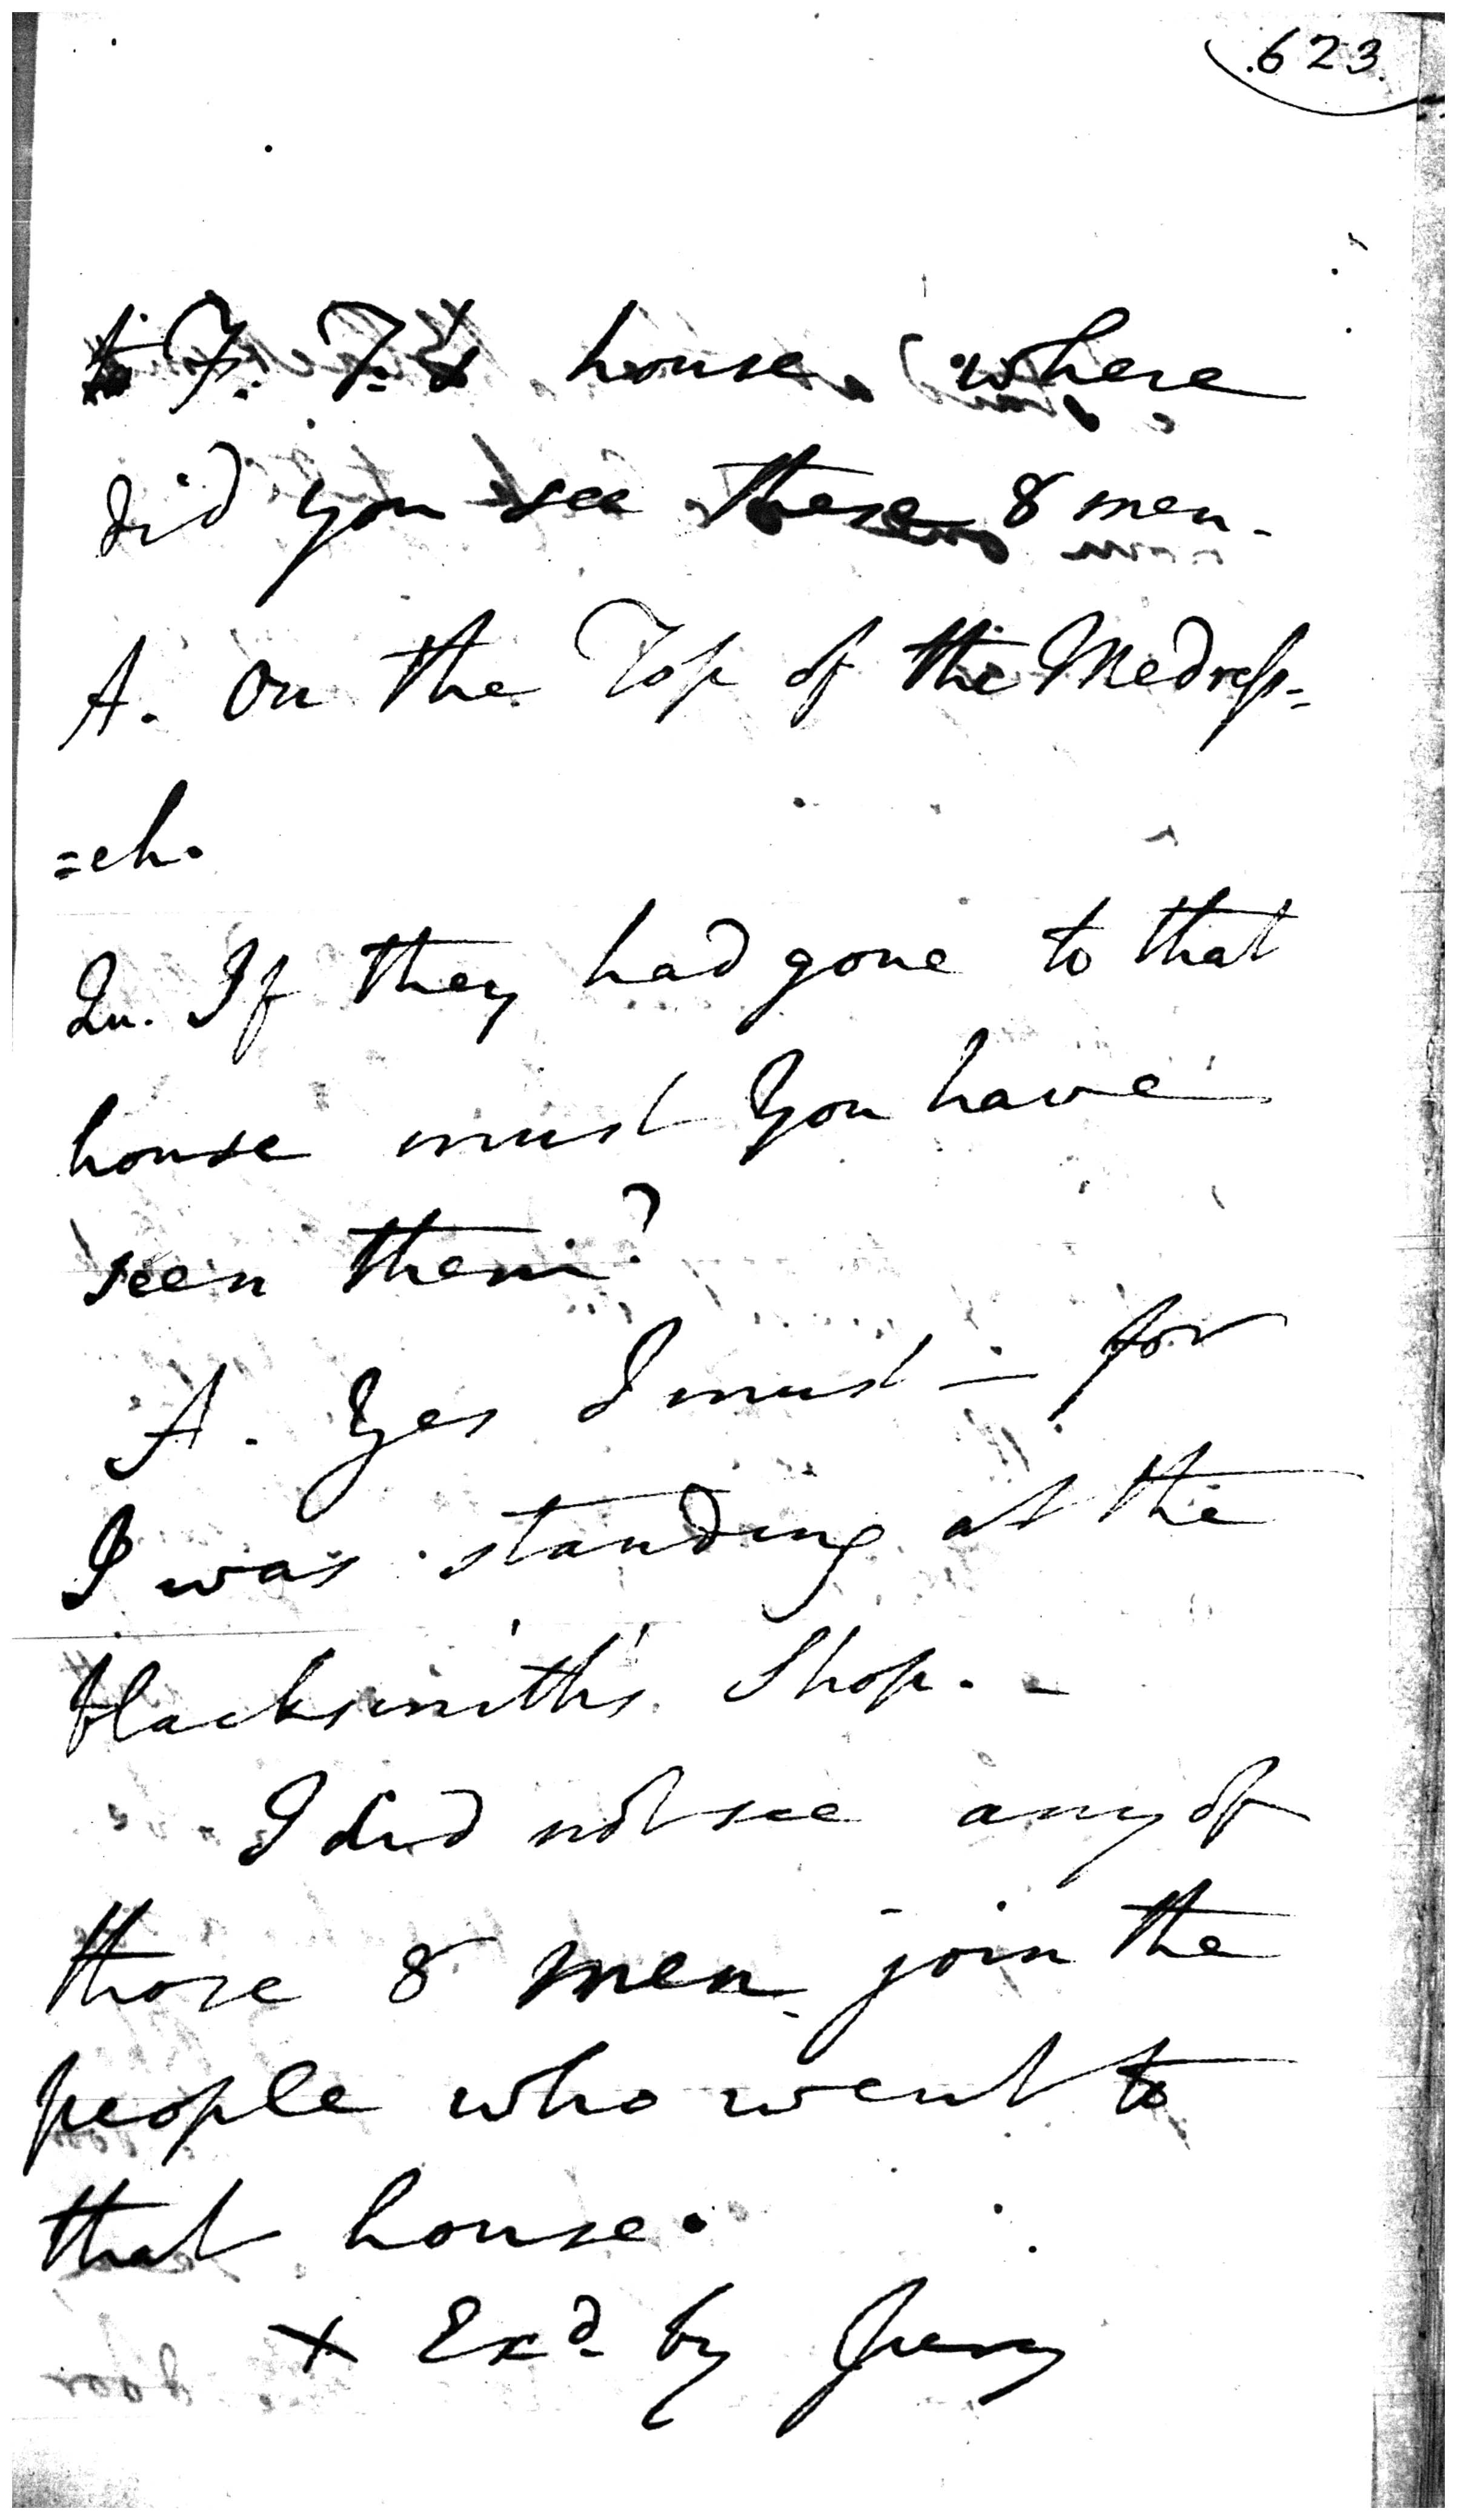 623
to F. T.s house where
did you see these 8 men.
A. On the Top of the Medress=
=eh.
Qu. If they had gone to that
house must You have
seen them?
A. Yes I must — for
I was standing at the
blacksmith's Shop. -
I did not see any of
those 8 men join the
people who went to
that house.
× Exd by Jury